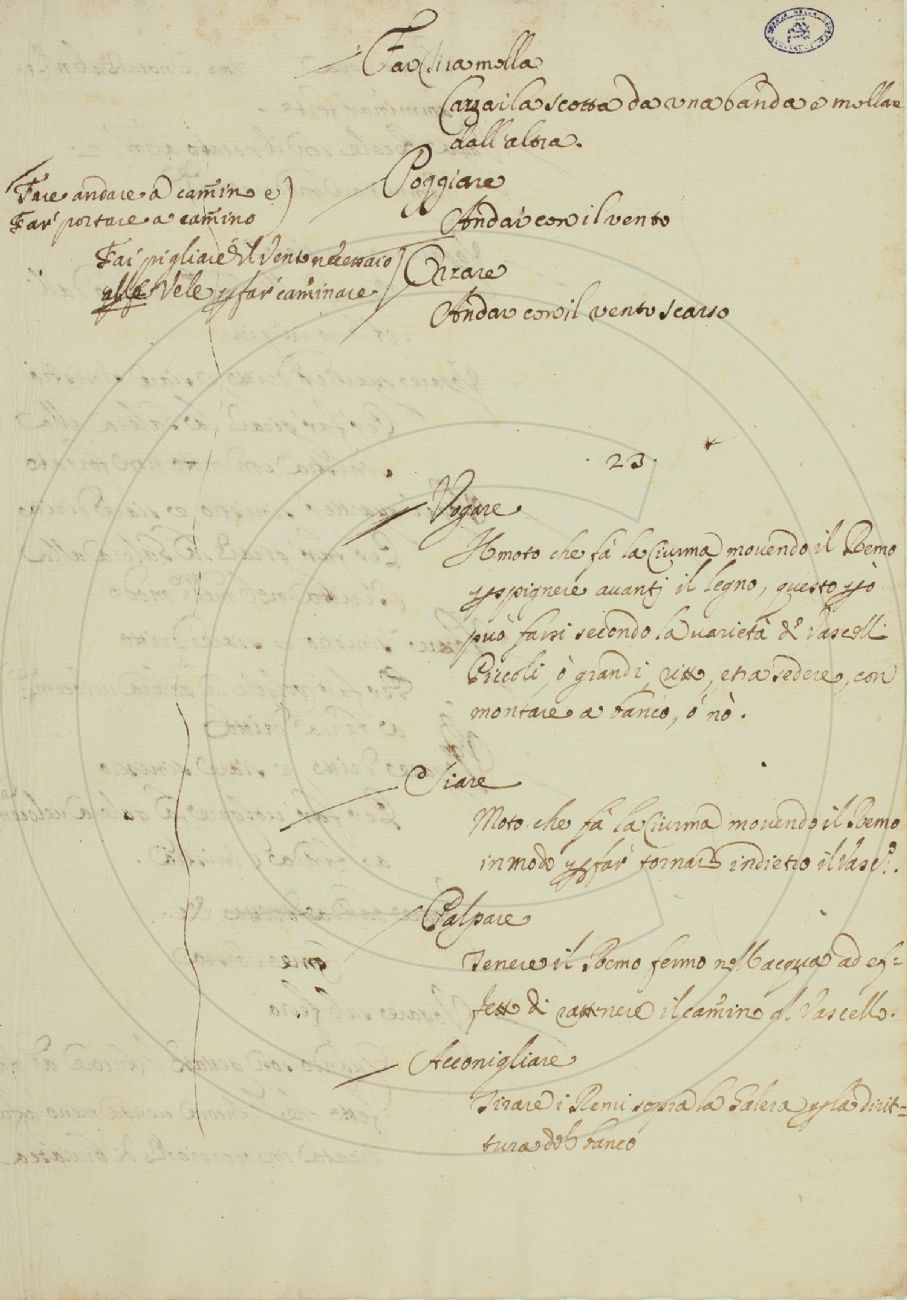 Far Tira molla
Cazzar la scotta da una banda e mollare
dall'altra.
Poggiare
Andar con il vento
Fare andare à camino e
Far portare a camino
Far pigliare il Vento necessario
alle Vele p far caminare
Orzare
Andar con il vento scarso
23.
Vogare
Il moto che fà la Ciurma movendo il Remo
p spignere avanti il legno, questo pò
può farsi secondo la varietà d' Vascelli
Piccoli, ò grandi, ritto, et a sedere, con
montare a banco, ò nò.
Siare
Moto che fà la Ciurma movendo il Remo
in modo p far tornar indietro il Vasc.º.
Palpare
Tenere il Remo fermo nell'acqua ad ef=
fetto di rattenere il camino al Vascello.
Acconigliare
Tirare i Remi sopra la Galera p la dirit=
tura del banco